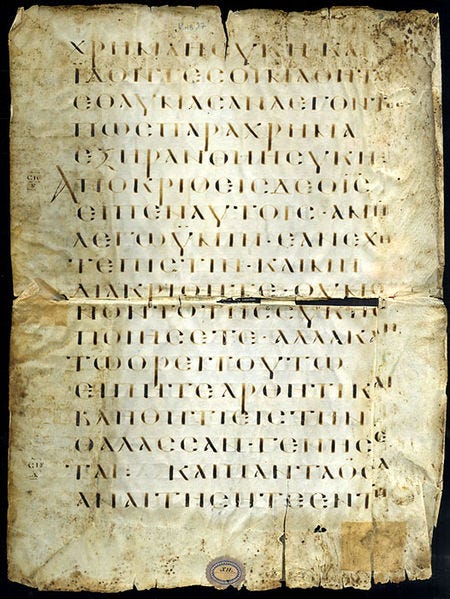 ΧΡΗΜΑ Η CΥΚΗ· ΚΑΙ
ΙΔΟΝΤΕC ΟΙ ΜΑΘΗΤΑΙ
ΕΘΑΥΜΑCΑΝ ΛΕΓΟΝΤΕC
ΠΩC ΠΑΡΑΧΡΗΜΑ
ΕΞΗΡΑΝΘΗ Η CΥΚΗ·
ΑΠΟΚΡΙΘΕΙC ΔΕ Ο ΙC
ΕΙΠΕΝ ΑΥΤΟΙC· ΑΜΗΝ
ΛΕΓΩ ΫΜΙΝ· ΕΑΝ ΕΧΗ
ΤΕ ΠΙCΤΙΝ· ΚΑΙ ΜΗ
ΔΙΑΚΡΙΘΗΤΕ· ΟΥ ΜΟ
ΝΟΝ ΤΟ ΤΗC CΥΚΗC
ΠΟΙΗCΕΤΕ· ΑΛΛΑ ΚΑΝ
ΤΩ ΟΡΕΙ ΤΟΥΤΩ
ΕΙΠΗΤΕ ΑΡΘΗΤΙ ΚΑΙ
ΒΛΗΘΗΤΙ ΕΙC ΤΗΝ
ΘΑΛΑCCΑΝ· ΓΕΝΗCΕ
ΤΑΙ· ΚΑΙ ΠΑΝΤΑ ΟCΑ
ΑΝ ΑΙΤΗCΗΤΕ ΕΝ ΤΗ